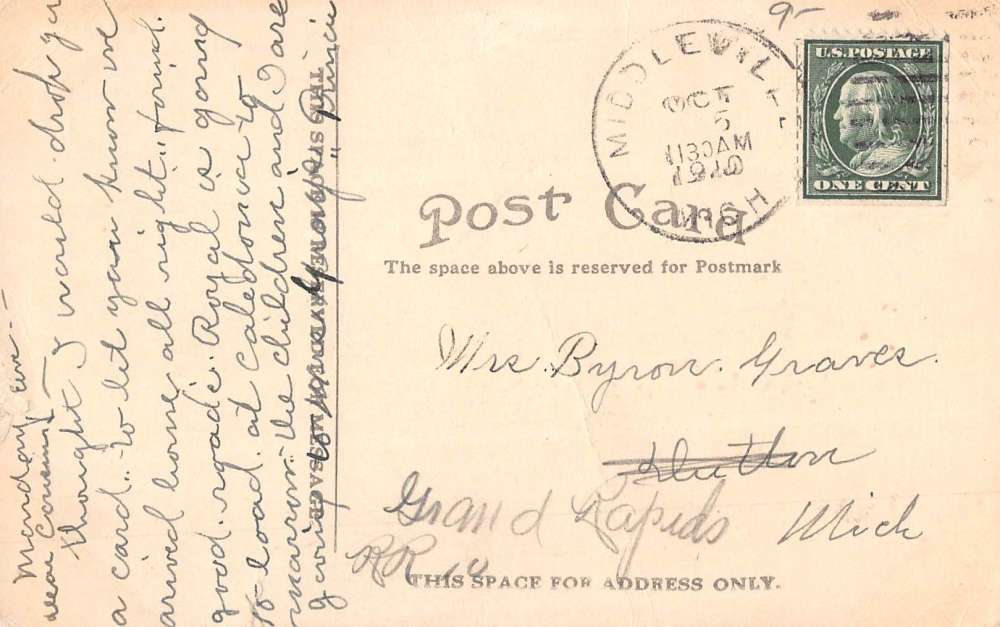 Monday Eve.
Dear Cousins
thought I would drop you
a card to let you know we
arrived home all right, found
good roads. Royal is going
to load at Caledonia to
morrow. the children and I are
going to
THIS SPACE RESERVED FOR MESSAGE
9-
MIDDLEVILLE
OCT
5
1130AM
MICH
U.S. POSTAGE
ONE CENT
Post Card
The space above is reserved for Postmark
Mrs. Byron. Graves.
Dutton
Grand Rapids Mich
RR 10
THIS SPACE FOR ADDRESS ONLY.